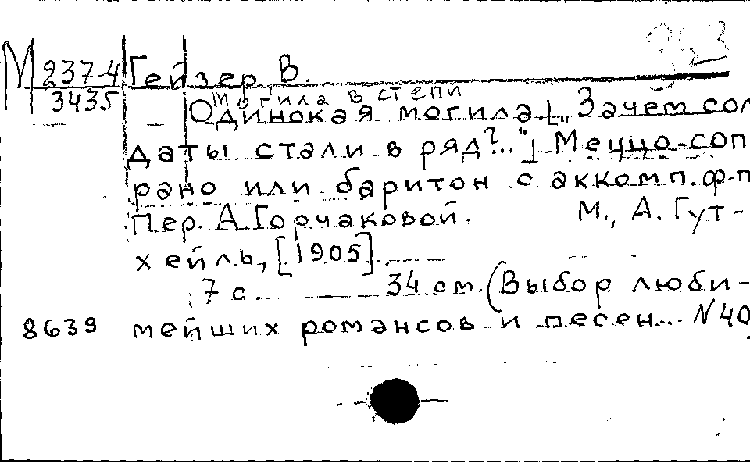 М 237-4 Гейзер В.
3435 Могила в степи
Одинокая могила [„Зачем сол
даты стали в ряд?.."] Меццо-соп
рано или баритон с аккомп. ф-п
Пер. А. Горчаковой. М., А. Гут-
хейль, [1905].
7 с. 34 см. (Выбор люби-
8639 мейших романсов и песен... N 40